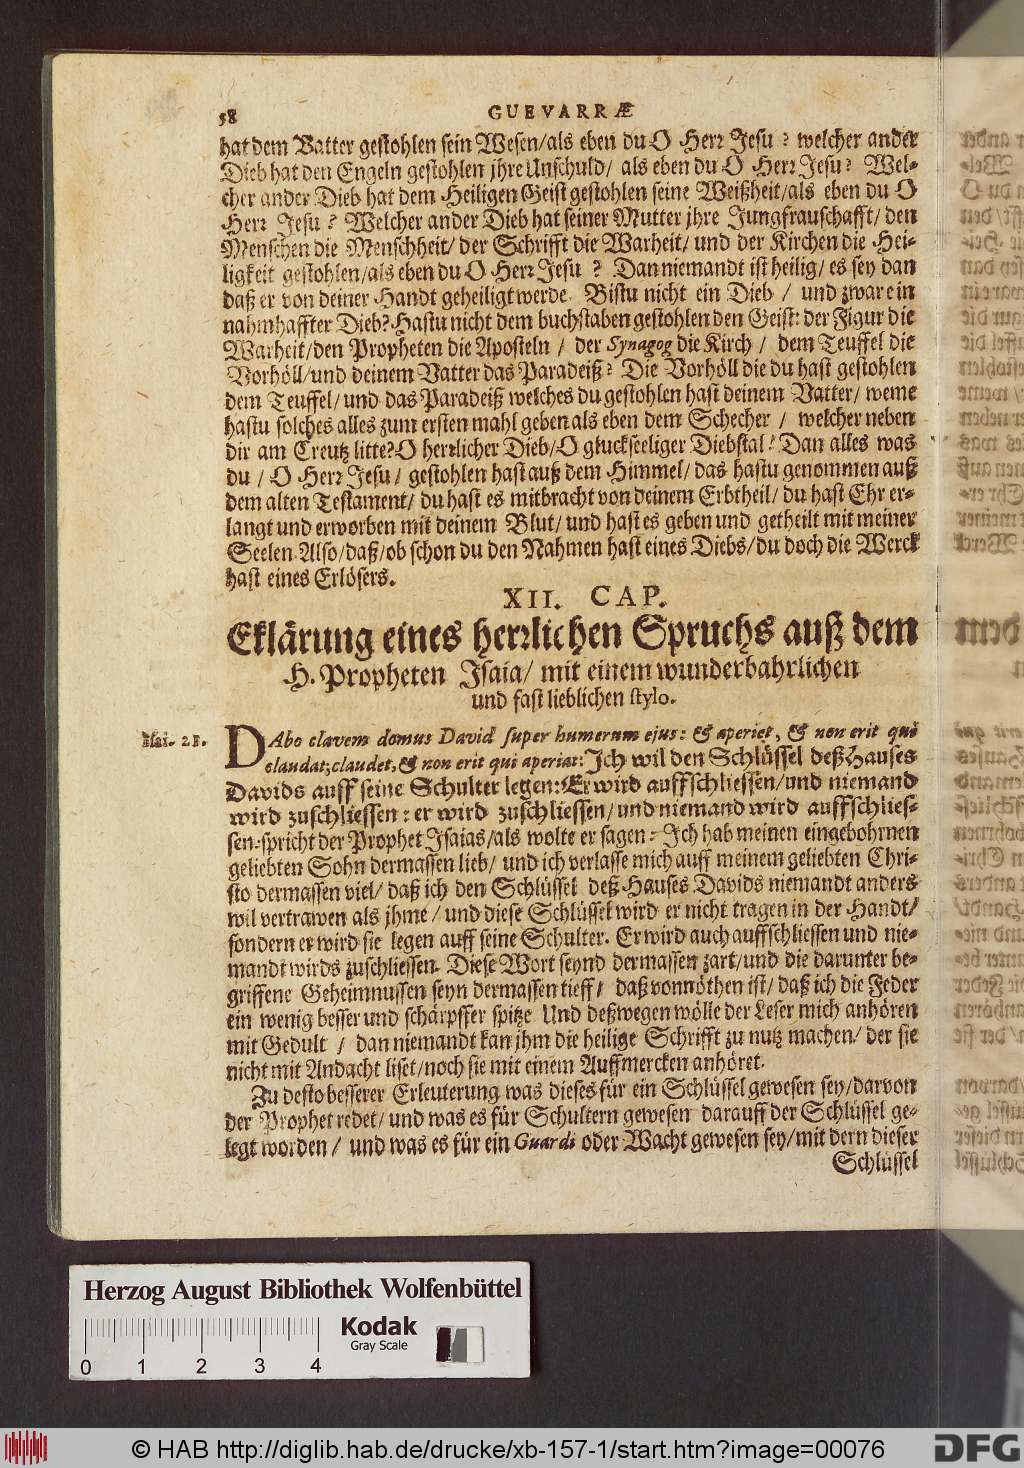 58
GUEVARRÆ
hat dem Vatter gestohlen sein Wesen/als eben du O Herr Jesu? welcher ander
Dieb hat den Engeln gestohlen jhre Unschuld/ als eben du O Herr Jesu? Wel-
cher ander Dieb hat dem Heiligen Geist gestohlen seine Weißheit/als eben du O
Herr Jesu? Welcher ander Dieb hat seiner Mutter jhre Jungfrauschafft/ den
Menschen die Menschheit/ der Schrifft die Warheit/ und der Kirchen die Hei-
ligkeit gestohlen/als eben du O Herr Jesu? Dan niemandt ist heilig/ es sey dan
daß er von deiner Handt geheiligt werde. Bistu nicht ein Dieb/ und zwar ein
nahmhaffter Dieb? Hastu nicht dem buchstaben gestohlen den Geist: der Figur die
Warheit/den Propheten die Aposteln/ der Synagog die Kirch/ dem Teuffel die
Vorhöll/und deinem Vatter das Paradeiß? Die Vorhöll die du hast gestohlen
dem Teuffel/und das Paradeiß welches du gestohlen hast deinem Vatter/ weme
hastu solches alles zum ersten mahl geben als eben dem Schecher/ welcher neben
dir am Creutz litte? O herrlicher Dieb/O gluckseeliger Diebstal! Dan alles was
du/ O Herr Jesu/ gestohlen hast auß dem Himmel/das hastu genommen auß
dem alten Testament/ du hast es mitbracht von deinem Erbtheil/du hast Ehr er-
langt und erworben mit deinem Blut/ und hast es geben und getheilt mit meiner
Seelen. Also/daß/ob schon du den Nahmen hast eines Diebs/du doch die Werck
hast eines Erlösers.
XII. CAP.
Eklärung eines herrlichen Spruchs auß dem
H. Propheten Isaia/ mit einem wunderbahrlichen
und fast lieblichen stylo.
Isai. 21.
DAbo clavem domus David super humerum ejus: & aperiet, & non erit qui
claudat; claudet, & non erit qui aperiat: Ich wil den Schlüssel deß Hauses
Davids auff seine Schulter legen: Er wird auffschliessen/und niemand
wird zuschliessen: er wird zuschliessen/und niemand wird auffschlies-
sen: spricht der Prophet Isaias/als wolte er sagen: Ich hab meinen eingebohrnen
geliebten Sohn dermassen lieb/ und ich verlasse mich auff meinem geliebten Chri-
sto dermassen viel/ daß ich den Schlüssel deß Hauses Davids niemandt anders
wil vertrawen als jhme/ und diese Schlüssel wird er nicht tragen in der Handt/
sondern er wird sie legen auff seine Schulter. Er wird auch auffschliessen und nie-
mandt wirds zuschliessen. Diese Wort seynd dermassen zart/und die darunter be-
griffene Geheimnussen seyn dermassen tieff/ daß vonnöthen ist/ daß ich die Feder
ein wenig besser und schärpffer spitze. Und deßwegen wölle der Leser mich anhören
mit Gedult/ dan niemandt kan jhm die heilige Schrifft zu nutz machen/ der sie
nicht mit Andacht liset/noch sie mit einem Auffmercken anhöret.
Zu desto besserer Erleuterung was dieses für ein Schlüssel gewesen sey/darvon
der Prophet redet/und was es für Schultern gewesen darauff der Schlüssel ge-
legt worden/ und was es für ein Guardi oder Wacht gewesen sey/mit dern dieser
Schlüssel
Herzog August Bibliothek Wolfenbüttel
Kodak
Gray Scale
0 1 2 3 4
© HAB http://diglib.hab.de/drucke/xb-157-1/start.htm?image=00076
DFG